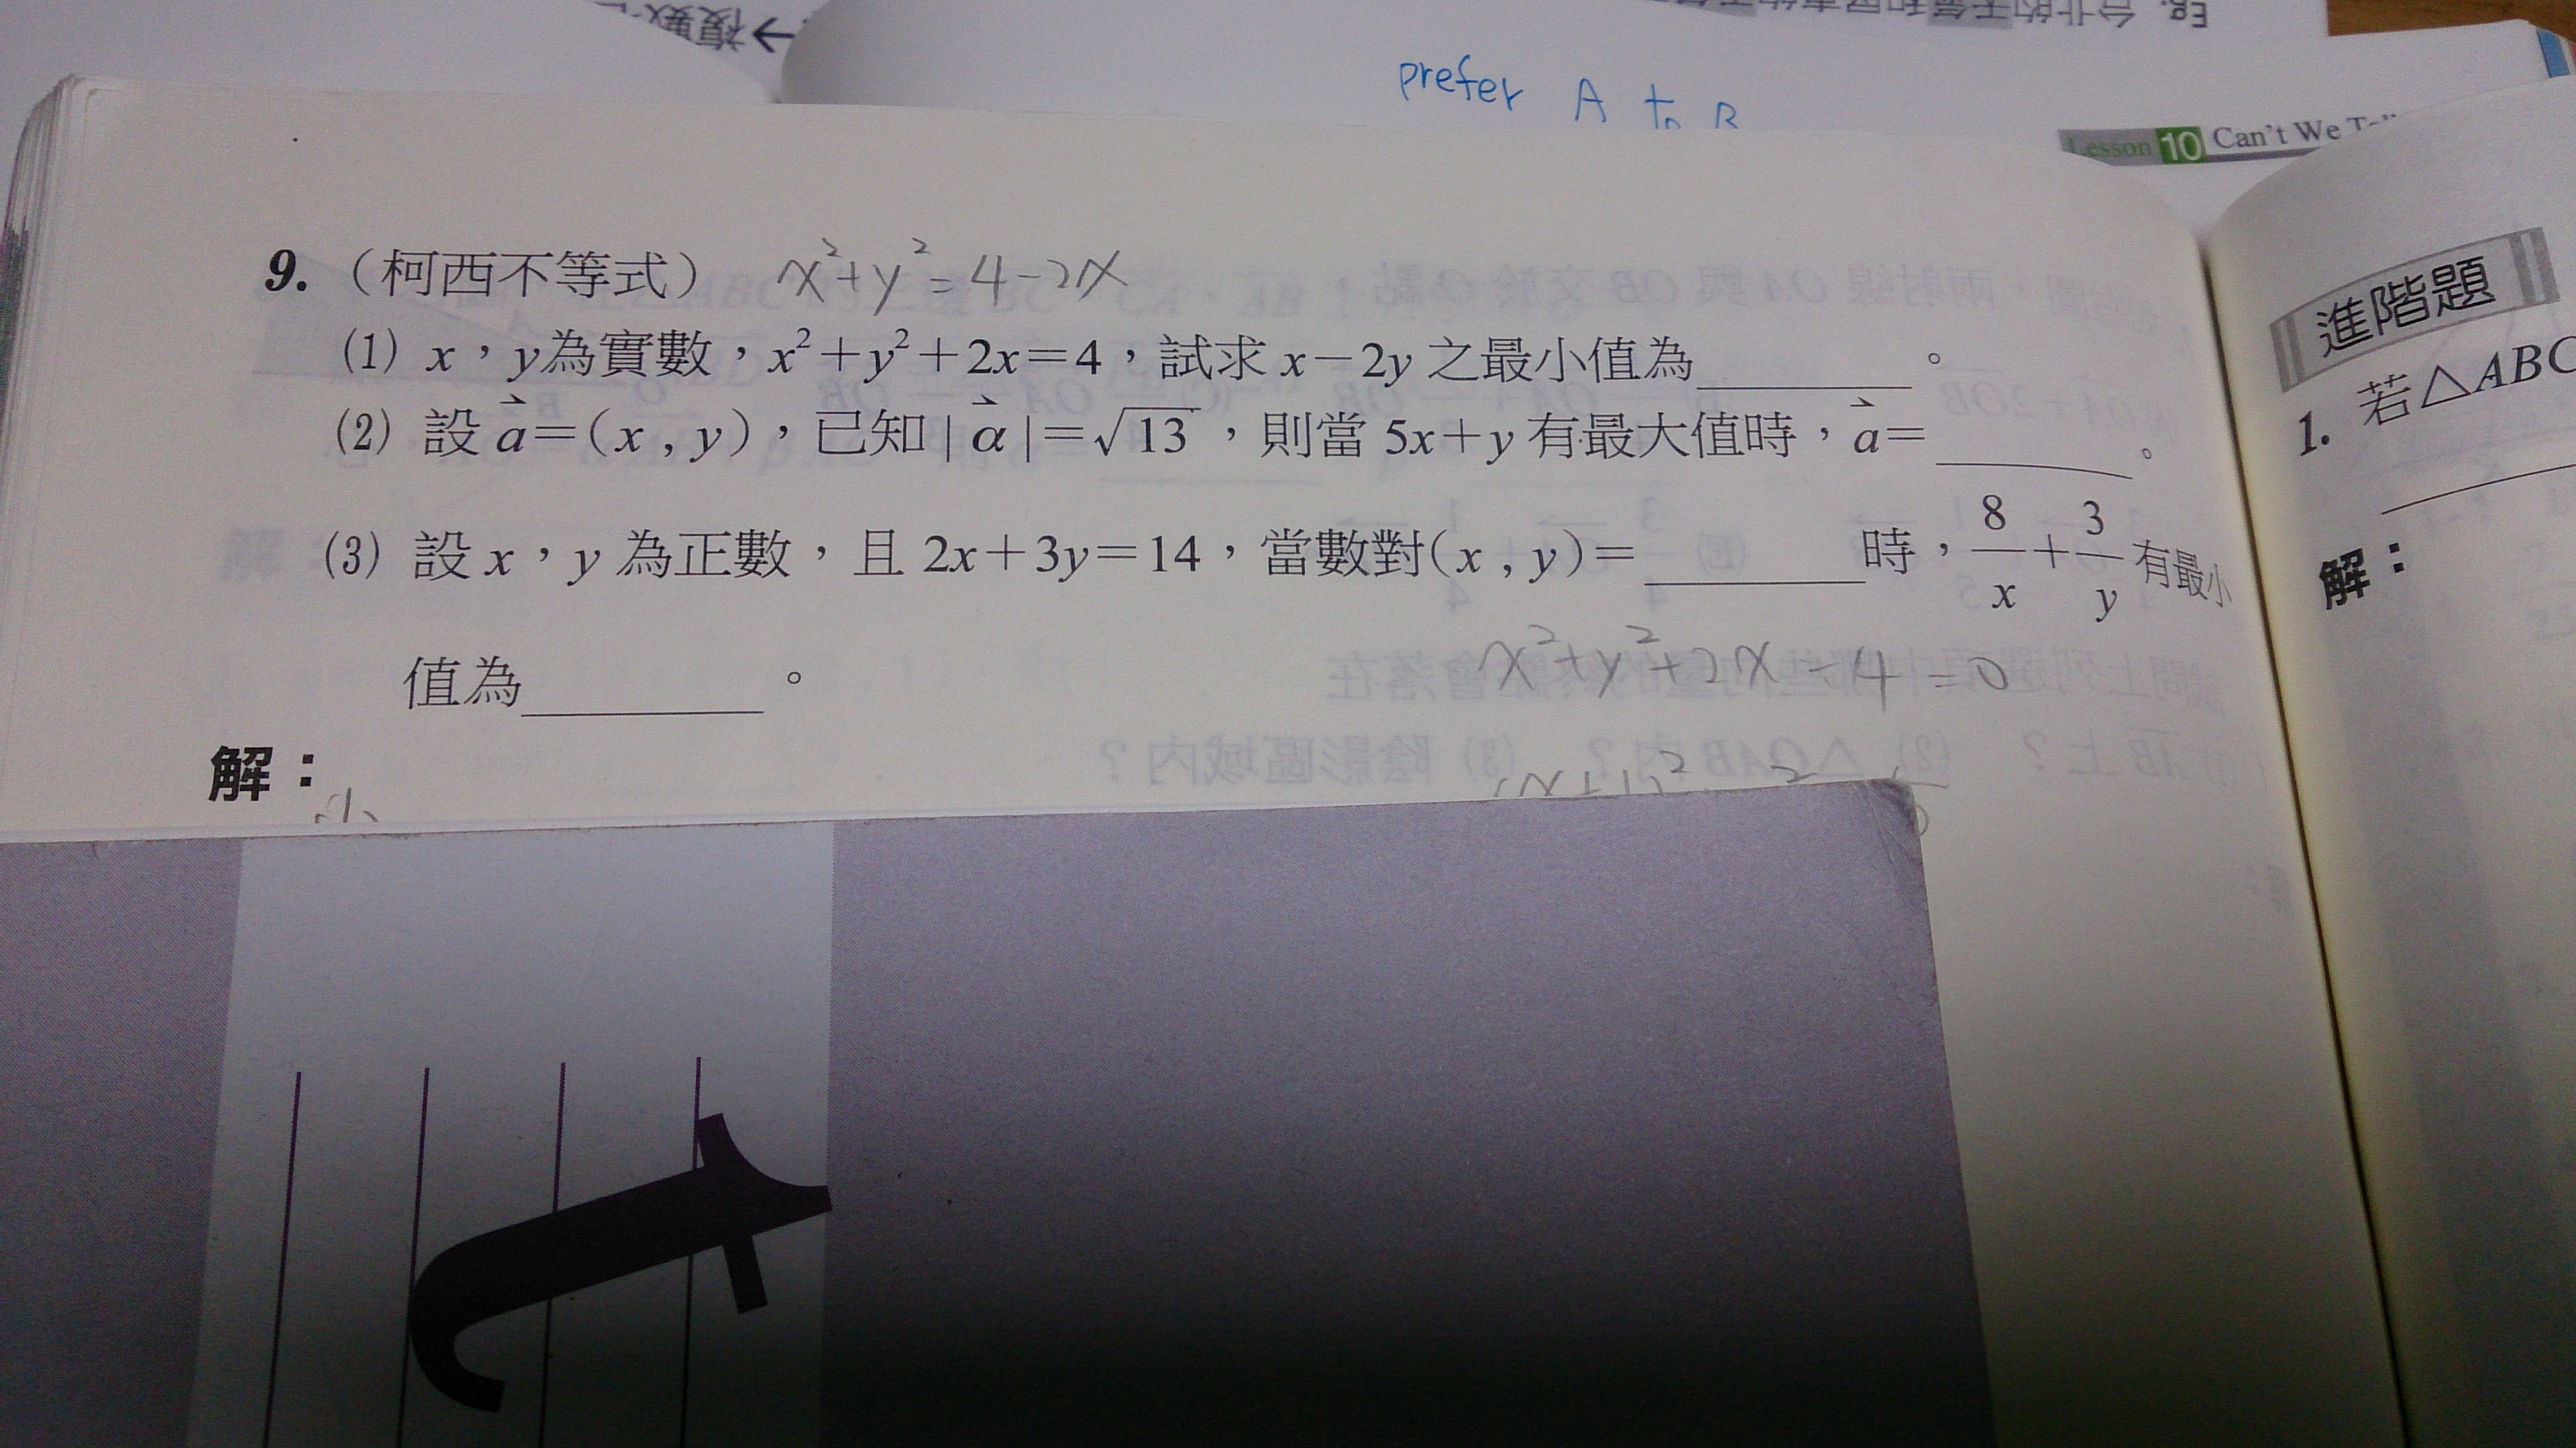 →複數
Eg. 台北的天氣和屏東的天氣
prefer A to B
Lesson 10 Can't We
9.（柯西不等式） x²+y²=4-2x
(1) x，y為實數，x²+y²+2x=4，試求 x-2y 之最小值為________。
(2) 設 a⃗=(x , y)，已知|α⃗|=√13，則當 5x+y 有最大值時，a⃗=________。
(3) 設 x，y 為正數，且 2x+3y=14，當數對(x , y)=________時，8/x+3/y 有最小
值為________。
x²+y²+2x-4=0
解：
(1)
t
進階題
1. 若△ABC
解：